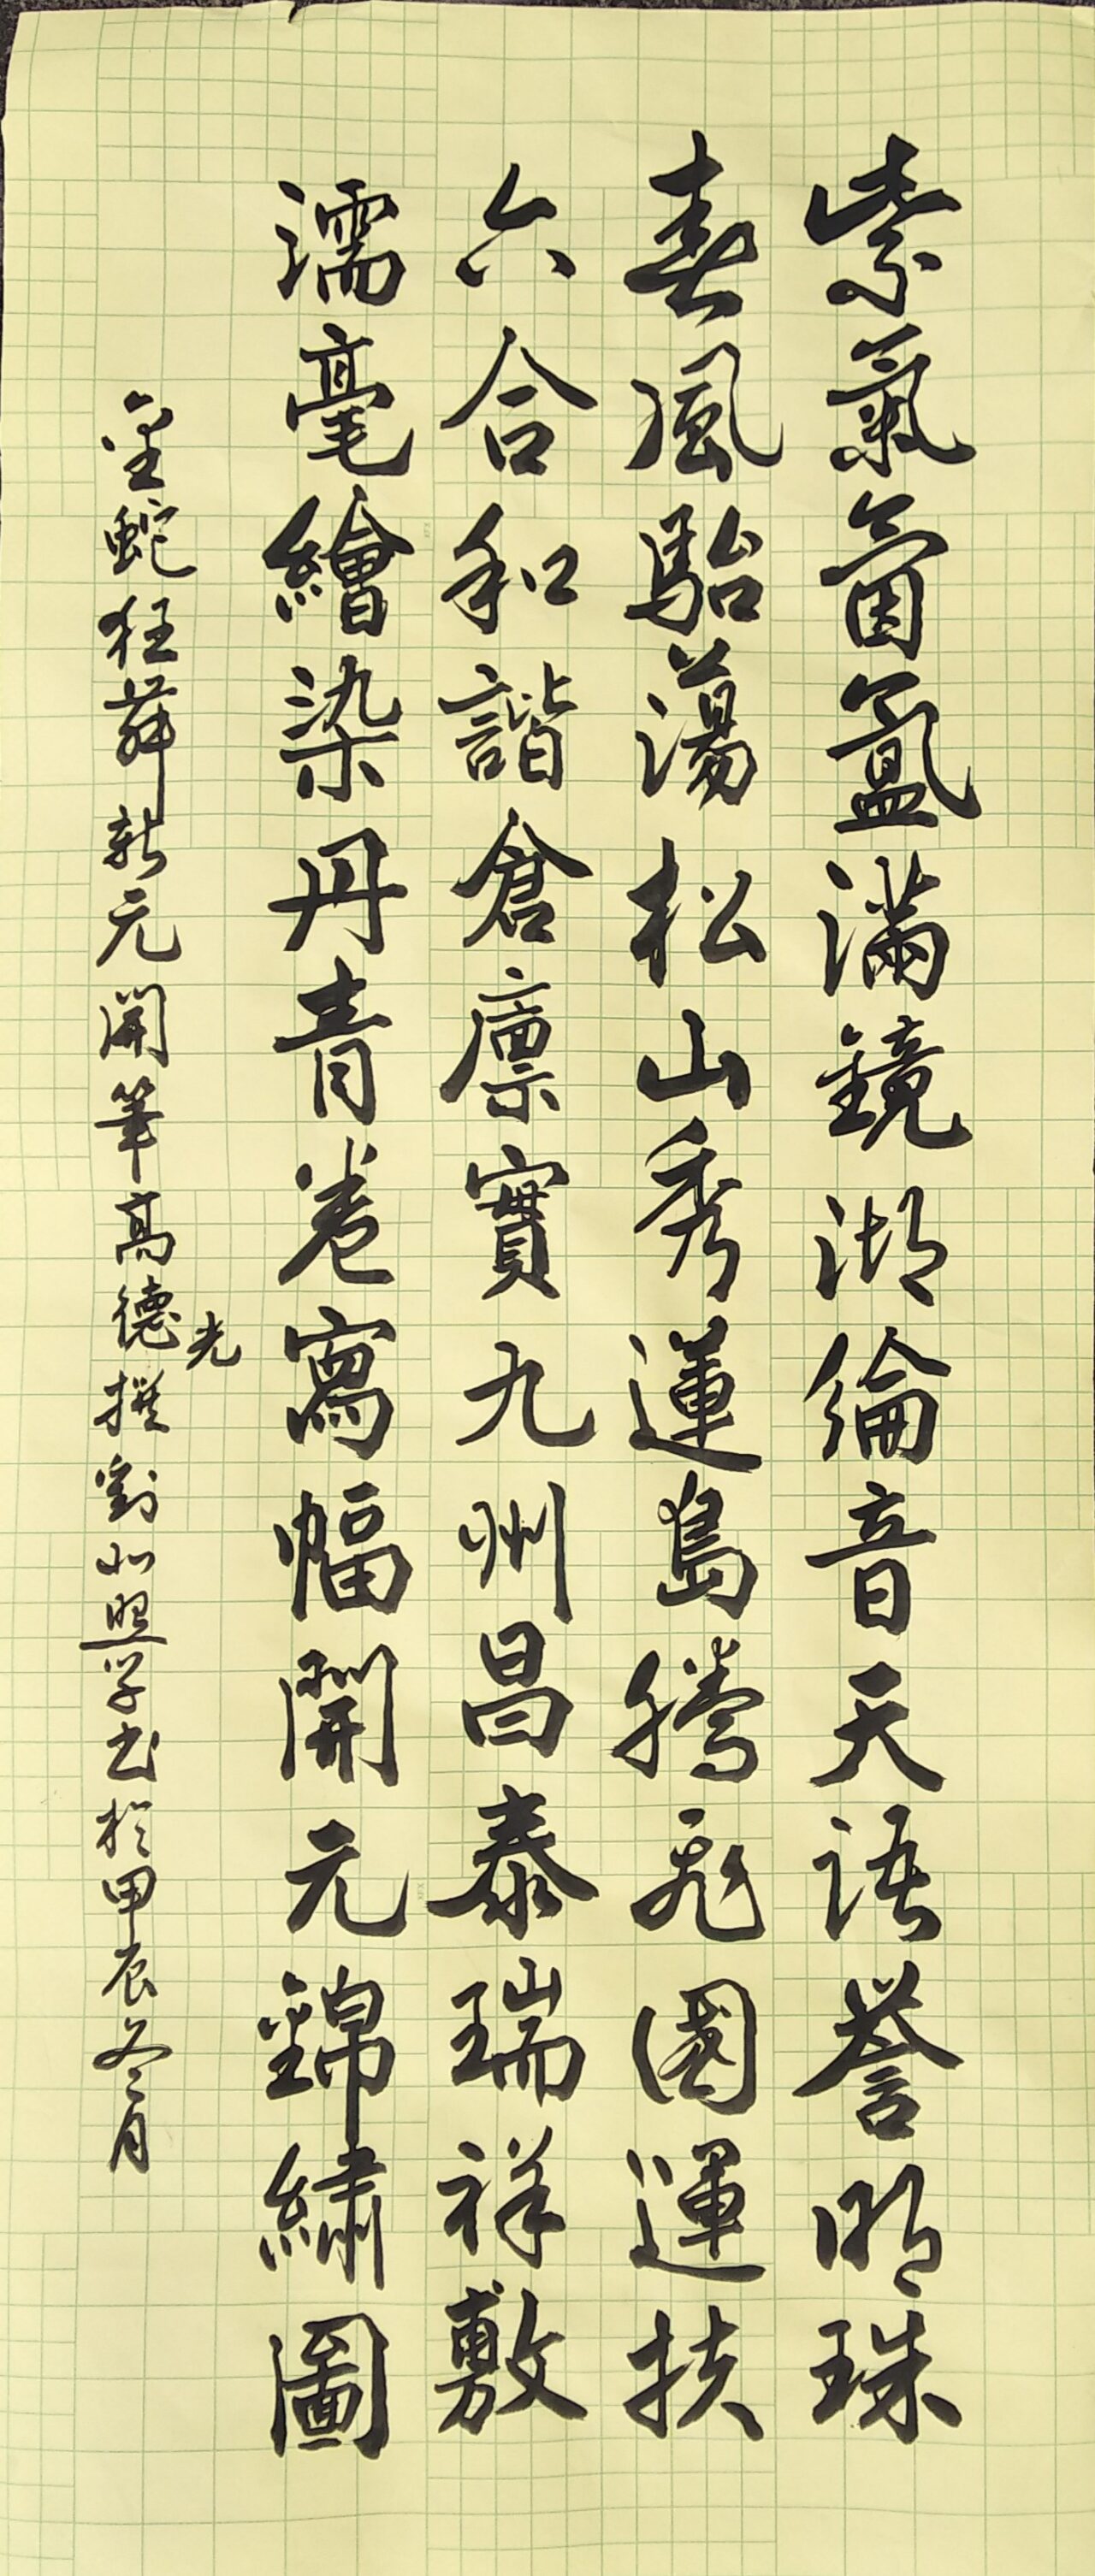 紫氣氤氳滿鏡湖綸音天語譽明珠
春風駘蕩松山秀蓮島騰飛國運扶
六合和諧倉廩實九州昌泰瑞祥敷
濡毫繪染丹青卷寫幅開元錦繡圖
金蛇狂舞新元開筆高德光撰劉如照学书於甲辰冬月